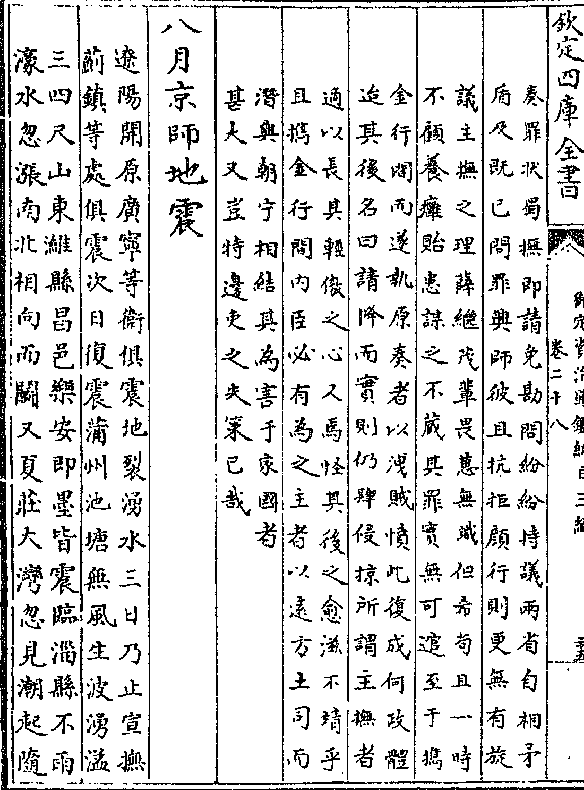 欽定四庫全書
御定資治通鑑綱目三編
卷二十八
奏罪狀蜀撫即請免勘問紛紛持議兩省自相矛
盾及既已問罪興師彼且抗拒顔行則更無有旋
議主撫之理薛繼茂輩畏葸無識但希苟且一時
不顧養癰貽患謀之不臧其罪實無可逭至于擕
金行間而遂執原奏者以洩賊憤此復成何政體
迨其後名曰請降而實則仍肆侵掠所謂主撫者
適以長其輕傲之心又焉怪其後之愈滋不靖乎
且擕金行間内臣必有為之主者以遠方土司而
潛與朝宁相結其為害于家國者
甚大又豈特邊吏之失策已哉
八月京師地震
遼陽開原廣寧等衛俱震地裂湧水三日乃止宣撫
薊鎮等處俱震次日復震蒲州池塘無風生波湧溢
三四尺山東濰縣昌邑樂安即墨皆震臨淄縣不雨
濠水忽漲南北相向而鬬又夏莊大灣忽見潮起隨